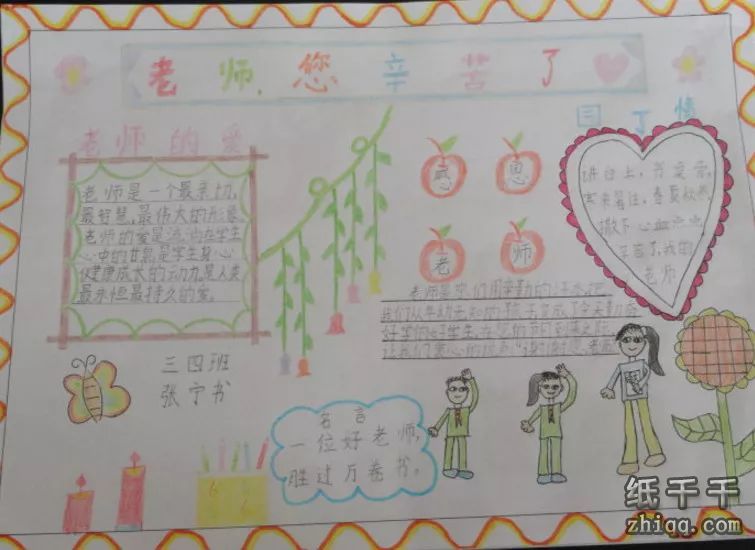 老师,您辛苦了
园丁情
老师的爱
老师是一个最亲切,
最智慧,最伟大的形象
老师的爱是流动在学生
心中的甘泉是学生身心
健康成长的动力,是人类
最永恒最持久的爱。
感 恩
老 师
讲台上,
寒来暑往,春夏秋冬
撒下心血点点
辛苦了,我的
老师
老师是您们用辛勤的汗水把
我们从年幼无知的孩子变成了今天勤奋
好学的好学生,在您的节日到来之际
三四班
张宁书
名言
一位好老师,
胜过万卷书。
纸千千
zhiqq.com